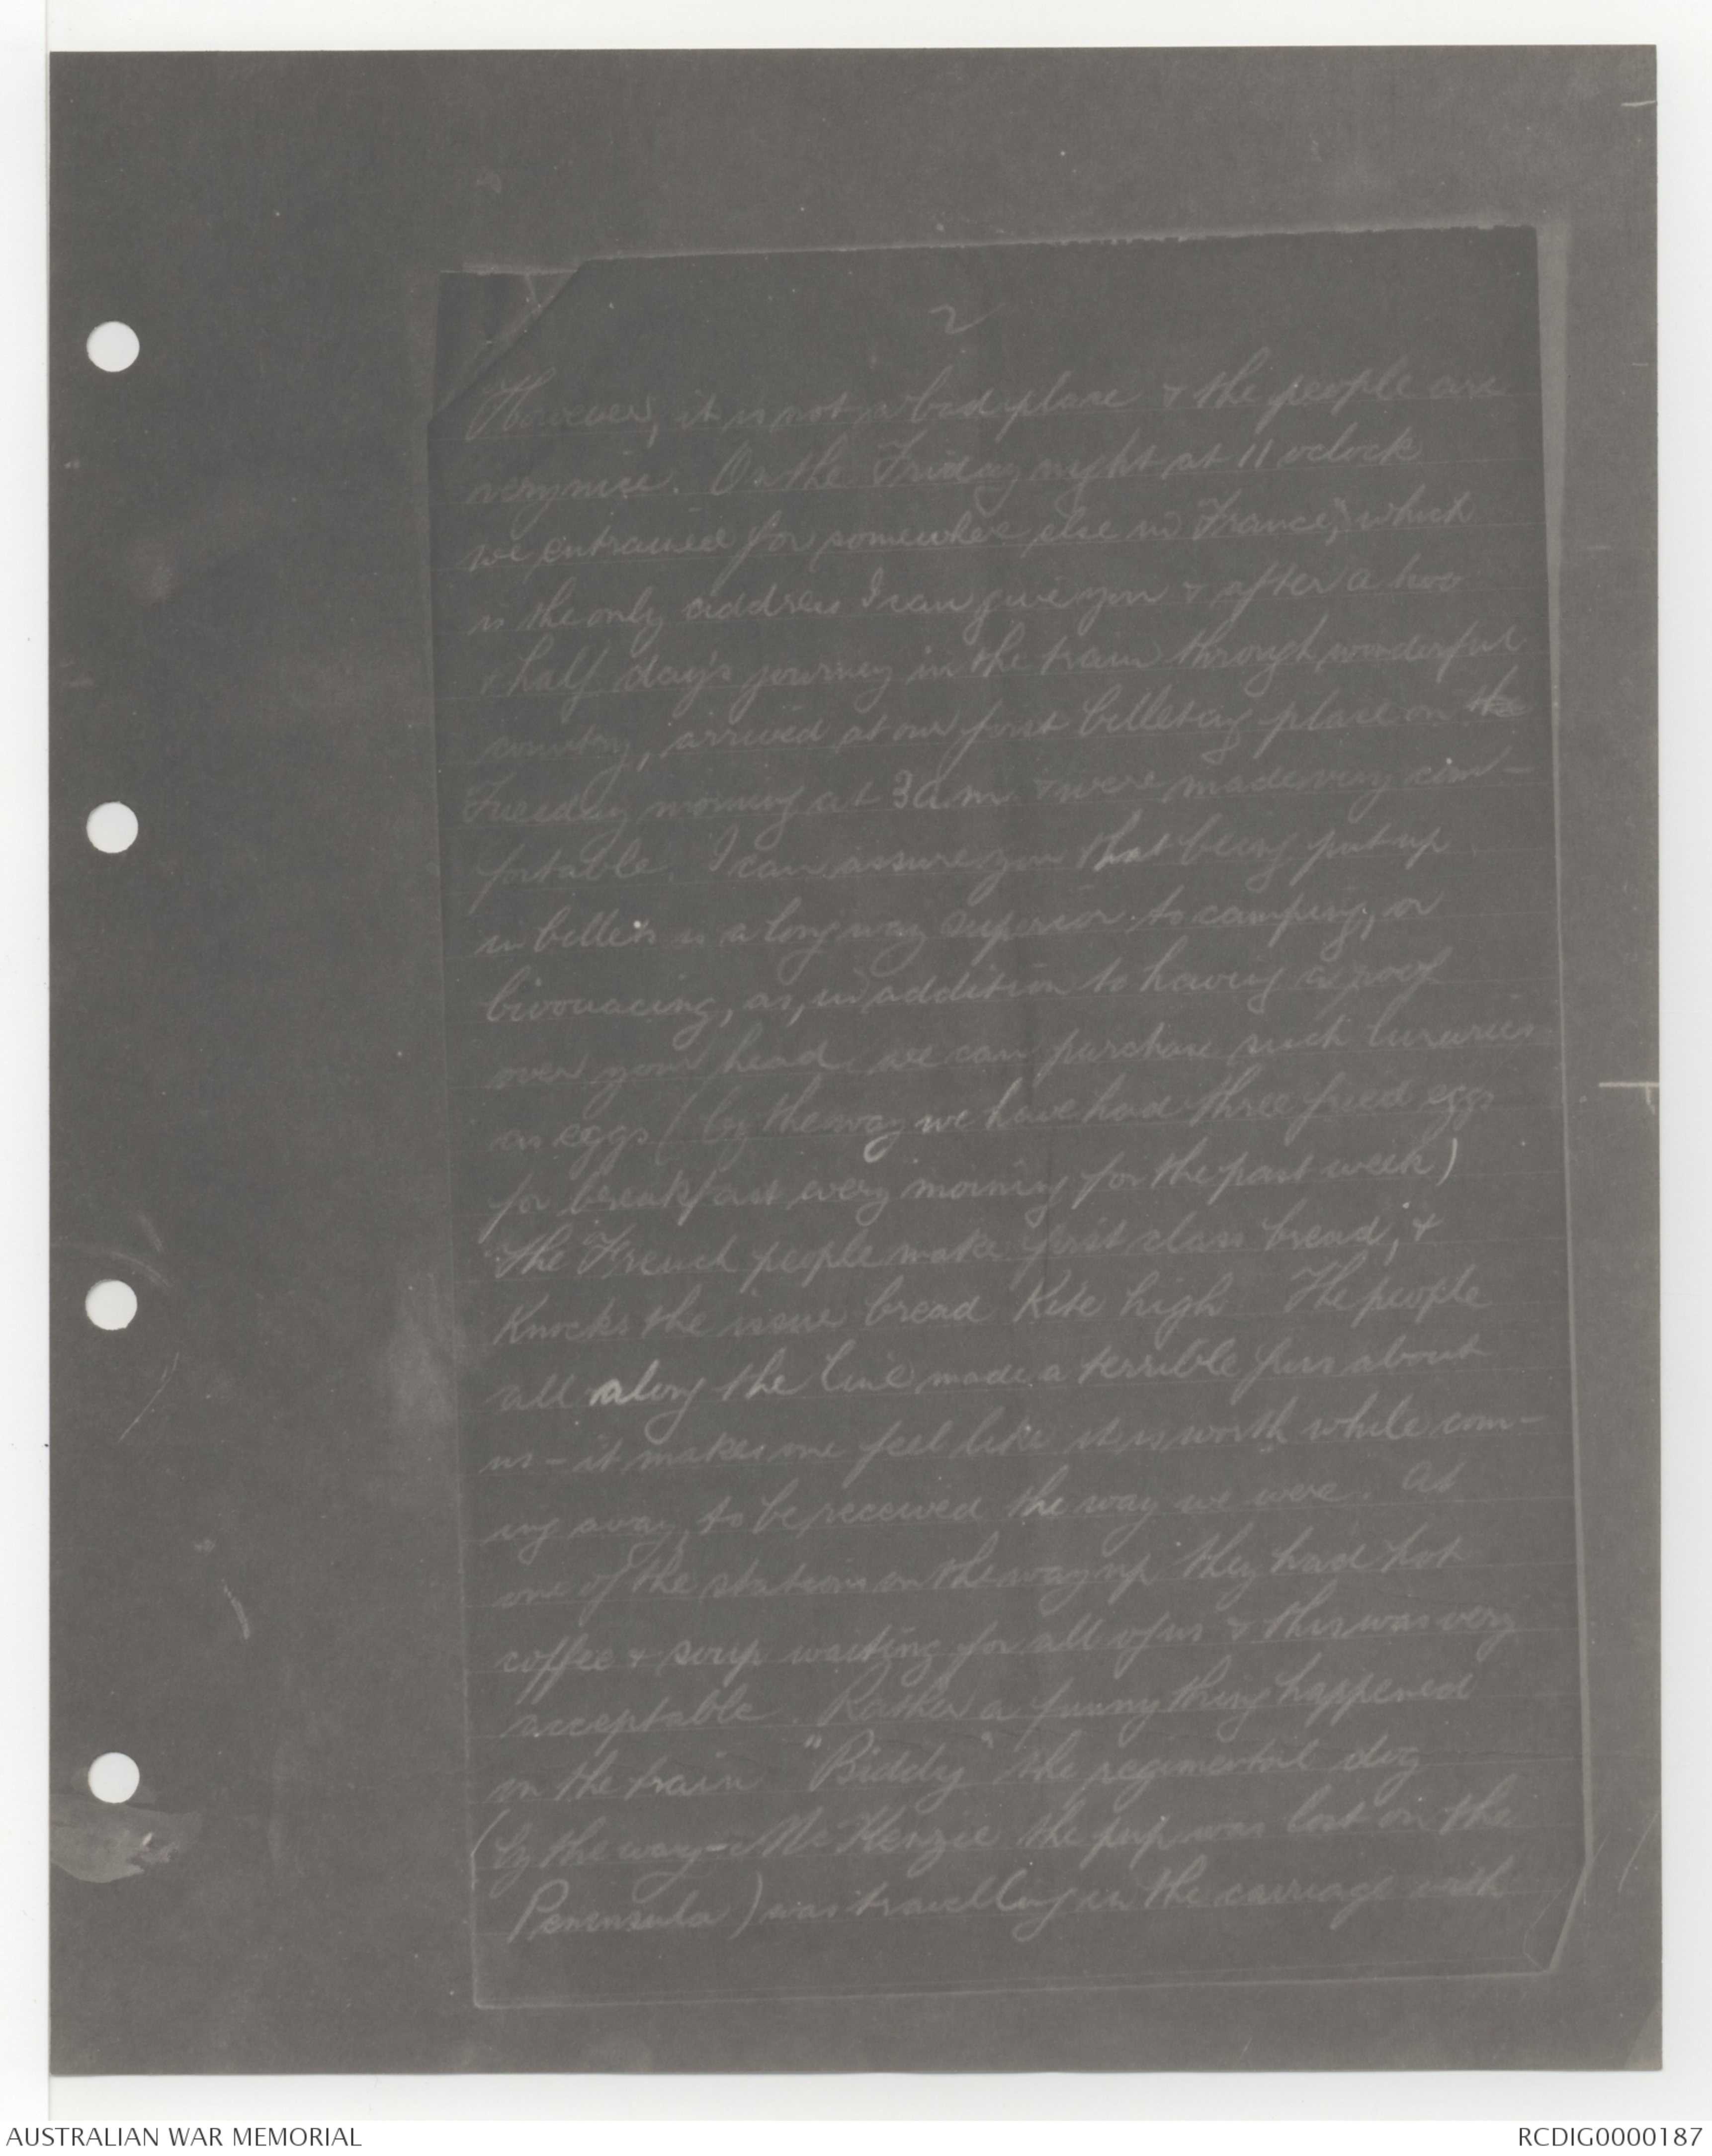 2
However, it is not a bad place & the people are
very nice. On the Friday night at 11 oclock
we entrained for somewhere else in France," which
is the only address I can give you & after a two
& half day's journey in the train through wonderful
country, arrived at our first billeting place on the
Tuesday morning at 3 a.m. & were made very com-
fortable. I can assure you that being put up
in billets is a long way superior to camping, or
bivouacing, as, in addition to having a roof
over your head, we can purchase such luxuries
as eggs (by the way we have had three fried eggs
for breakfast every morning for the past week)
The French people make first class bread, &
Knocks the issue bread Kite high The people
all along the line made a terrible fuss about
us - it makes me feel like it is worth while com-
ing away, to be received the way we were. At
one of the stations on the way up they had hot
coffee & soup waiting for all of us & this was very
acceptable. Rather a funny thing happened
on the train "Biddy" the regimental dog
(by the way - McKenzie the pup was lost on the
Peninsula) was travelling in the carriage with
AUSTRALIAN WAR MEMORIAL
RCDIG0000187